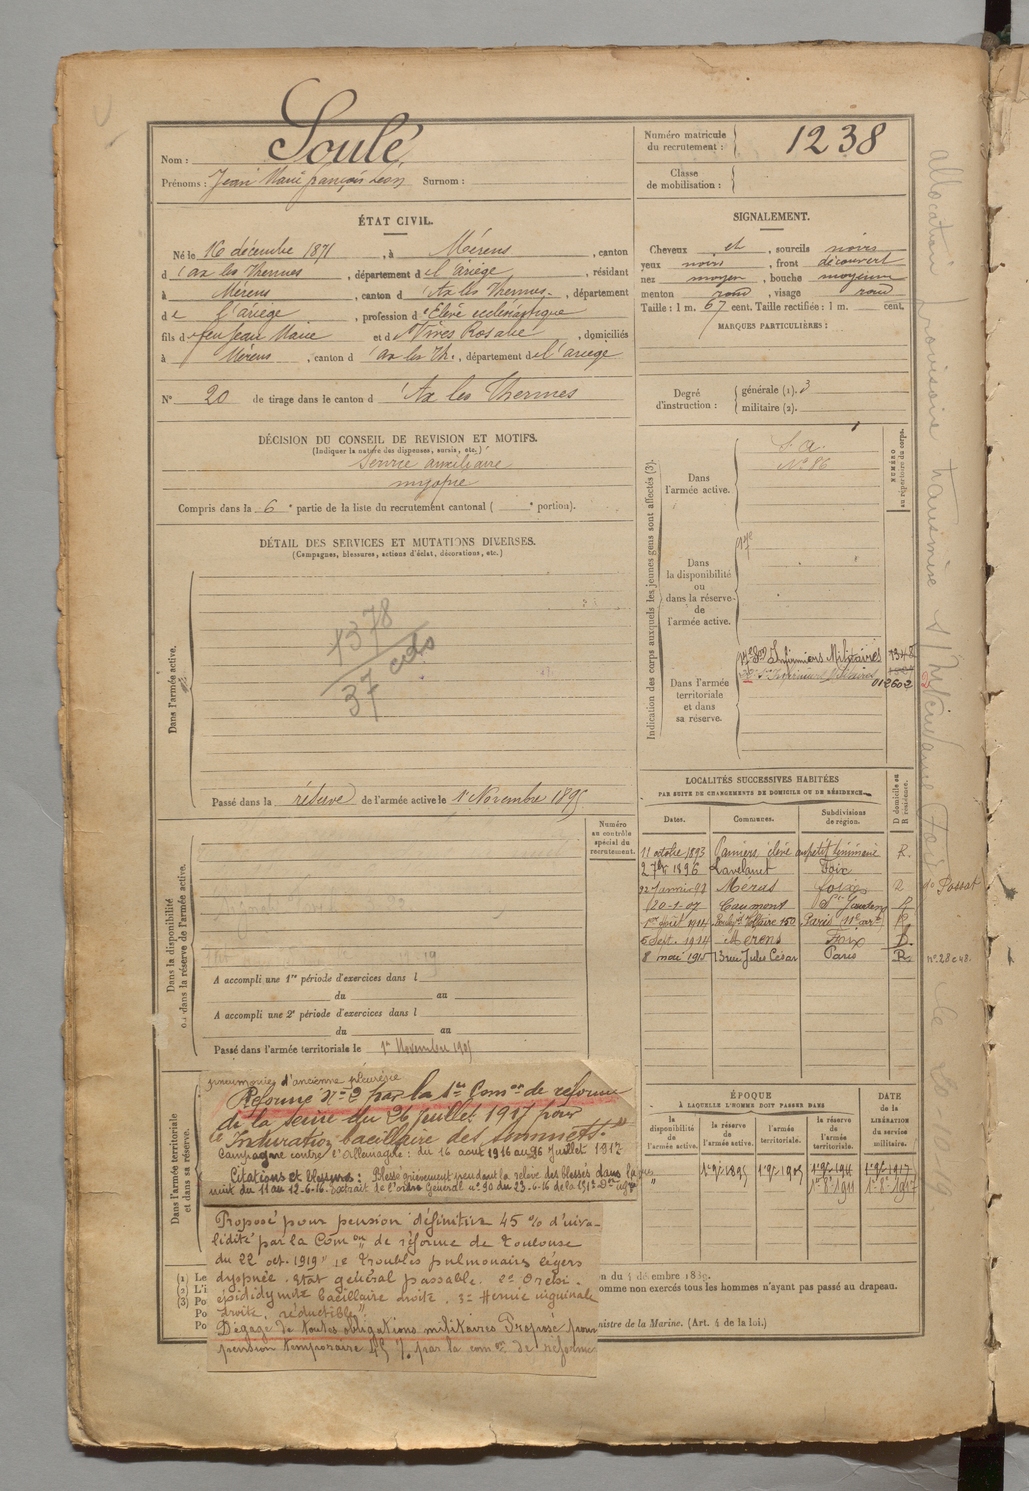 Nom : Soulé
Prénoms : Jean Marie françois Léon Surnom :
Numéro matricule du recrutement : 1238
Classe de mobilisation :
ÉTAT CIVIL.
Né le 16 décembre 1871, à Mérens, canton
d'ax les Thermes, département de l'ariège, résidant
à Mérens, canton d'Ax les Thermes, département
de l'ariège, profession d'Elève ecclésiastique
fils de feu Jean Marie et de Vives Rosalie, domiciliés
à Mérens, canton d'ax les Th., département de l'ariège
N° 20 de tirage dans le canton d'Ax les Thermes
SIGNALEMENT.
Cheveux et, sourcils noirs
yeux noir, front découvert
nez moyen, bouche moyenne
menton rond, visage rond
Taille : 1 m. 67 cent. Taille rectifiée : 1 m. cent.
MARQUES PARTICULIÈRES :
Degré d'instruction : générale (1). 3
militaire (2).
DÉCISION DU CONSEIL DE REVISION ET MOTIFS.
(Indiquer la nature des dispenses, sursis, etc.)
Service auxiliaire
myopie
Compris dans la 6e partie de la liste du recrutement cantonal ( e portion).
DÉTAIL DES SERVICES ET MUTATIONS DIVERSES.
(Campagnes, blessures, actions d'éclat, décorations, etc.)
Dans l'armée active.
1378
37 cds
Passé dans la réserve de l'armée active le 1er Novembre 1895
Indication des corps auxquels les jeunes gens sont affectés (3).
NUMÉRO au répertoire du corps.
Dans l'armée active.
S. A.
N° 86
Dans la disponibilité ou dans la réserve de l'armée active.
17e
Dans l'armée territoriale et dans sa réserve.
17e Son Infirmiers Militaires
012602
LOCALITÉS SUCCESSIVES HABITÉES
PAR SUITE DE CHANGEMENTS DE DOMICILE OU DE RÉSIDENCE.
Dates. Communes. Subdivisions de région. D domicile ou R résidence.
11 octobre 1893 Pamiers, élève au petit Séminaire R.
2 7bre 1896 Lavelanet Foix
22 Janvier 97 Mérens foix
20-1-07 Caumont St Gaudens R
1er Août 1914 Boulevd Voltaire 150 Paris 11e arrt R
5 Sept. 1914 Mérens Foix D.
8 mai 1915 13 rue Jules César Paris R
n° 28 c 48.
Dans la disponibilité ou dans la réserve de l'armée active.
Numéro au contrôle spécial du recrutement.
A accompli une 1re période d'exercices dans l
du au
A accompli une 2e période d'exercices dans l
du au
Passé dans l'armée territoriale le 1er Novembre 1905
Dans l'armée territoriale et dans sa réserve.
pneumonies d'ancienne pleurésie
Réforme n° 2 par la 1ère Comon de réforme
de la seine du 26 juillet 1917 pour
Induration bacillaire des sommets.
Campagne contre l'Allemagne : du 16 aout 1916 au 26 Juillet 1917
Citations et blessures : Blessé grièvement pendant la relève des blessés dans la
nuit du 11 au 12-6-16. Extrait de l'ordre Général n° 90 du 23-6-16 de la 151e Don
Proposé pour pension définitive 45 % d'inva-
lidité par la Comon de réforme de Toulouse
du 22 oct. 1919 " 1e troubles pulmonaires légers
dyspnée. état général passable. 2e Orchi-
épididymite bacillaire droite. 3e Hernie inguinale
droite, réductible".
Dégagé de toutes obligations militaires Proposé pour
pension temporaire 45 % par la comon de réforme
ÉPOQUE
À LAQUELLE L'HOMME DOIT PASSER DANS
la disponibilité de l'armée active. la réserve de l'armée active. l'armée territoriale. la réserve de l'armée territoriale.
DATE de la LIBÉRATION du service militaire.
" 1er 9bre 1895 1er 9bre 1905 1er 9bre 1911 1er 9bre 1917
1er 8bre 1911 1er 8bre 1917
(1) Le
(2) L'i
(3) Po
Po
Po
on du 4 décembre 1889.
omme non exercés tous les hommes n'ayant pas passé au drapeau.
nistre de la Marine. (Art. 4 de la loi.)
allocation provisoire transmise